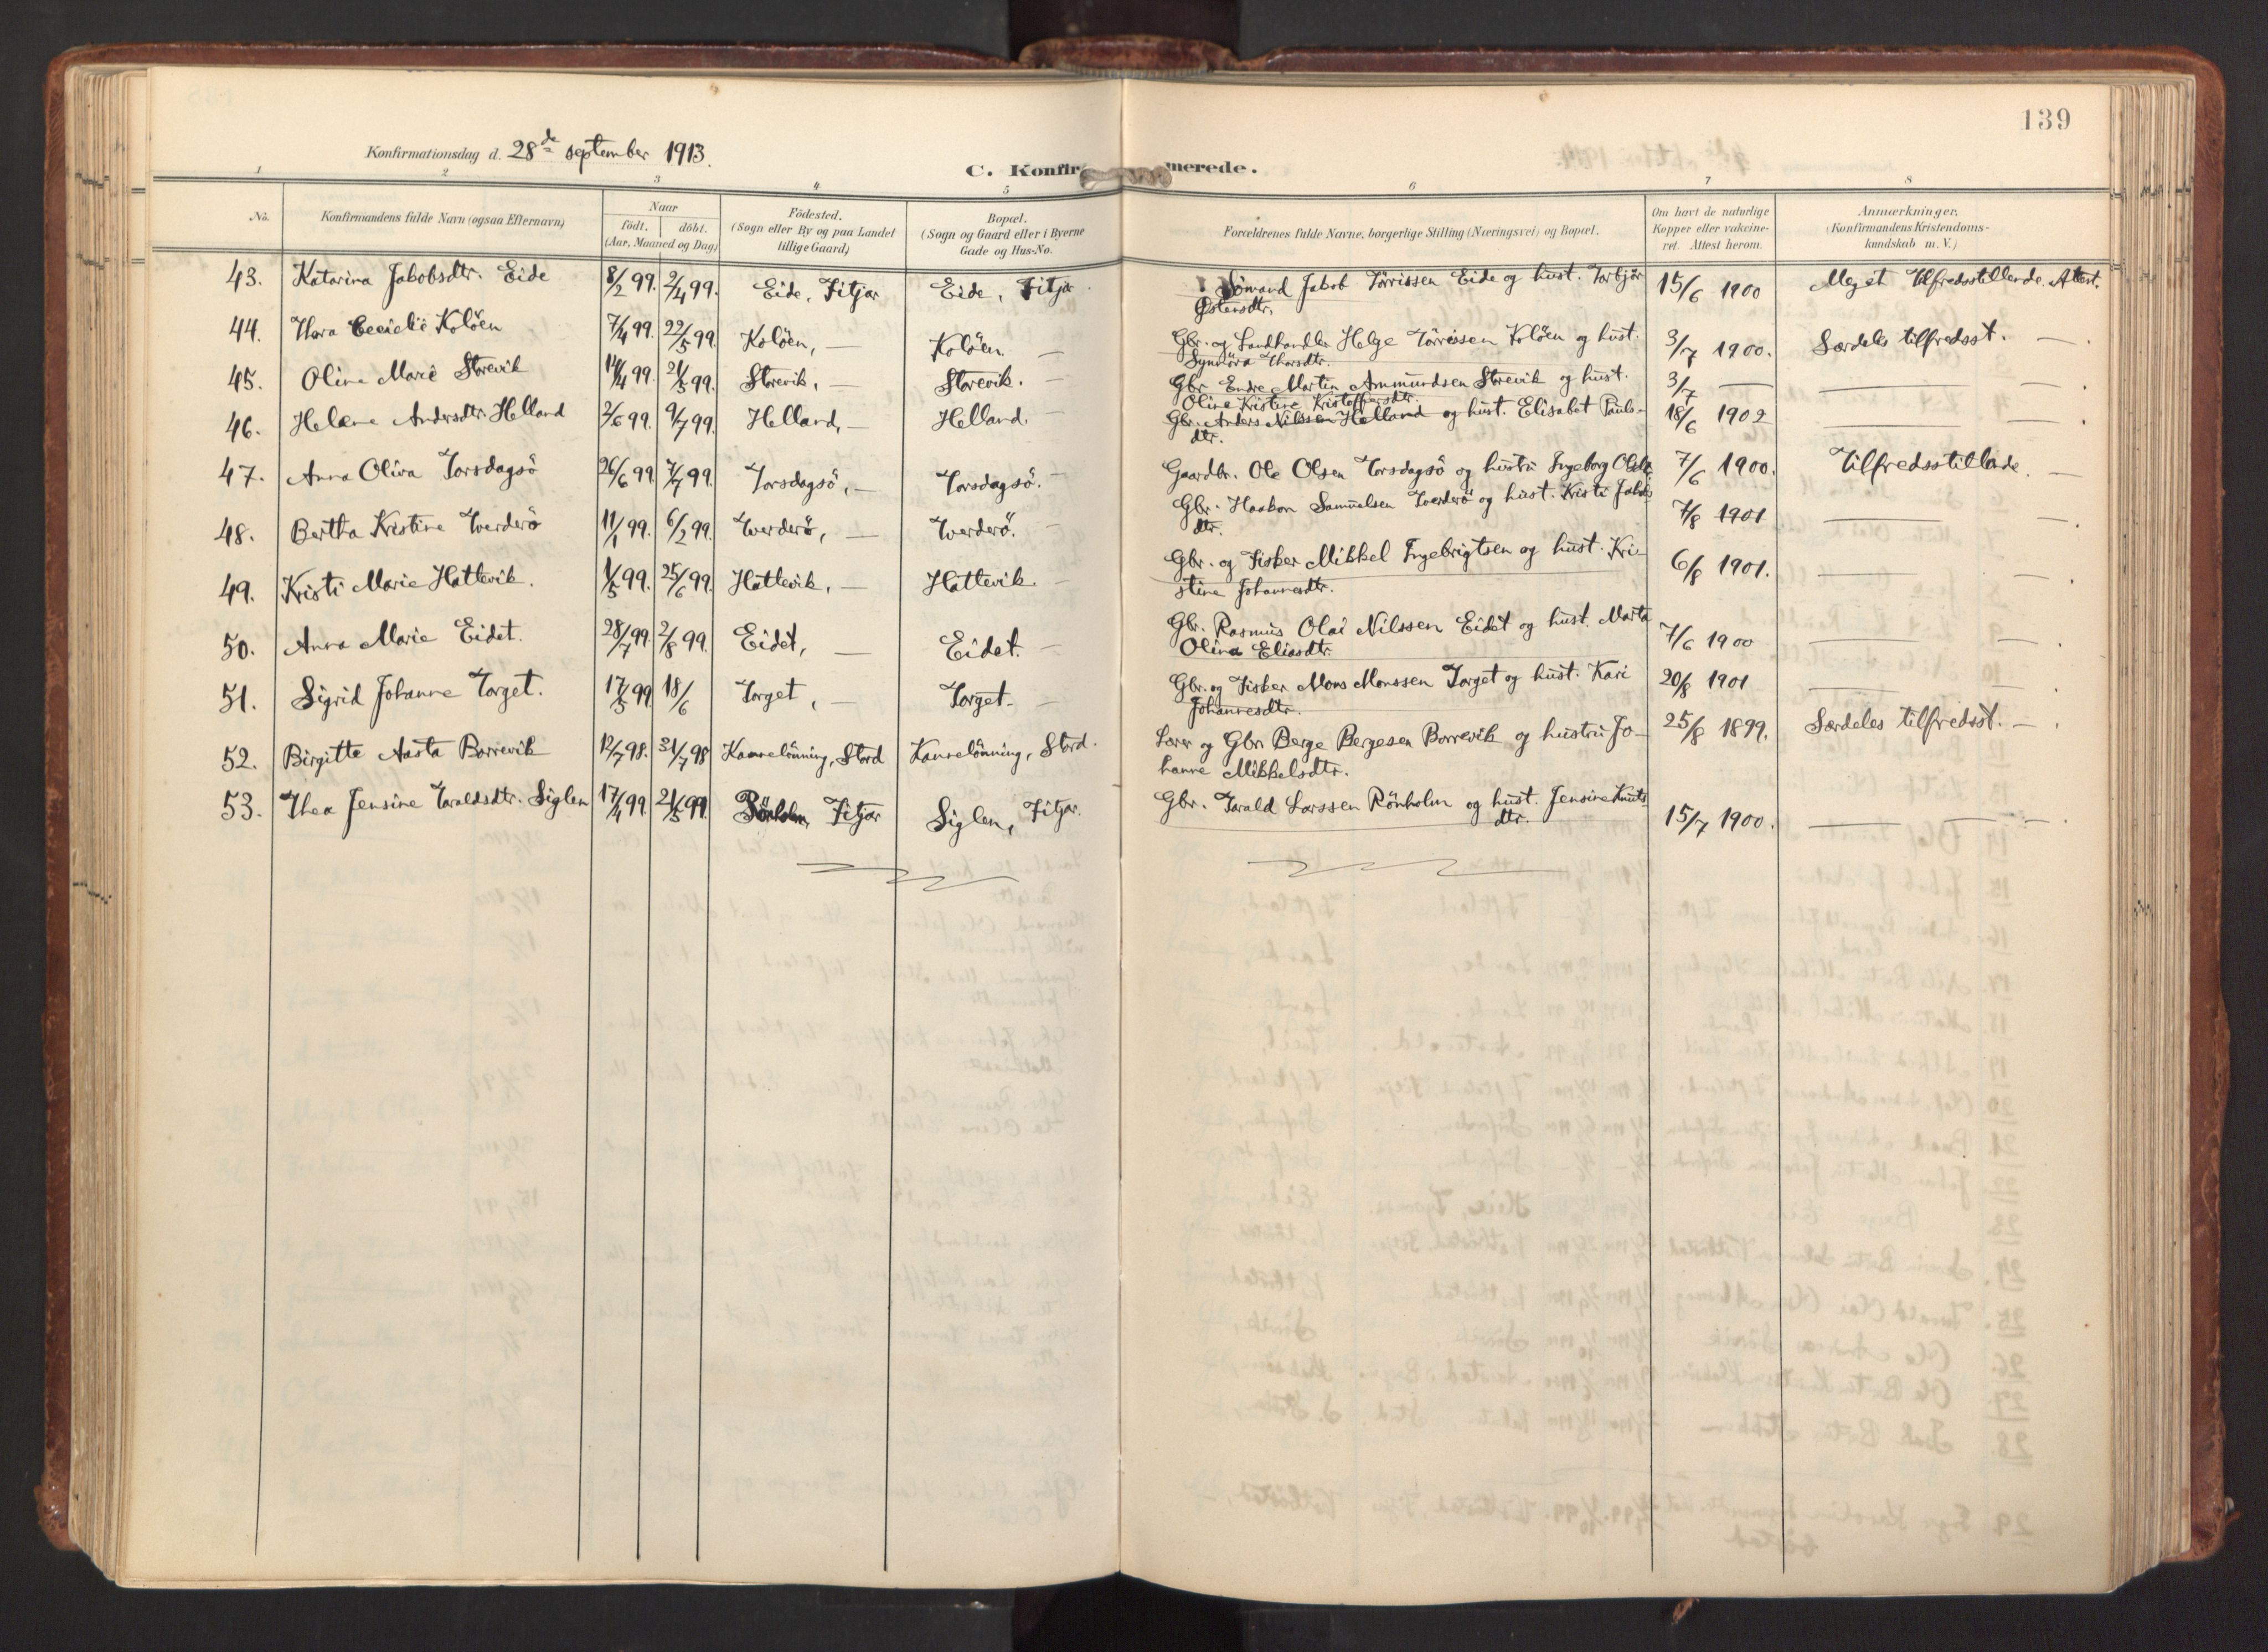 139
Konfirmationsdag d. 28de september 1913.
C. Konfirmerede.
1 2 3 4 5 6 7 8
No. Konfirmandens fulde Navn (ogsaa Efternavn) Naar födt. döbt. (Aar, Maaned og Dag) Födested. (Sogn eller By og paa Landet tillige Gaard) Bopæl. (Sogn og Gaard eller i Byerne Gade og Hus-No. Forældrenes fulde Navne, borgerlige Stilling (Næringsvei) og Bopæl. Om havt de naturlige Kopper eller vakcineret. Attest herom. Anmærkninger. (Konfirmandens Kristendomskundskab m. V.)
43. Katarina Jakobsdtr. Eide 8/2 99. 2/4 99. Eide, Fitjar Eide, Fitjar Sömand Jakob Törrissen Eide og hust. Torbjör 15/6 1900 Meget tilfredsstillende. Attest.
Östensdtr.
44. Thora Cecielie Kolöen 7/4 99. 22/5 99. Kolöen, — Kolöen. — Gbr. og Landhandler Helge Törrissen Kolöen og hust. 3/7 1900. Særdeles tilfredsst. — .
Synnöva Thorsdtr.
45. Oline Marie Storevik 14/4 99. 21/5 99. Storevik, — Storevik. — Gbr. Endre Martin Ammundsen Storevik og hust. 3/7 — — — .
Oline Kristine Kristoffersdtr.
46. Helene Andersdtr. Helland 2/6 99. 9/7 99. Helland, — Helland. — Gbr. Anders Nilssen Helland og hust. Elisabet Pauls- 18/6 1902 — — .
dtr.
47. Anna Oliva Torsdagsö 26/6 99. 7/7 99. Torsdagsö, — Torsdagsö. — Gaardbr. Ole Olsen Torsdagsö og hustru Ingeborg Olsdtr. 7/6 1900. Tilfredsstillende. —
48. Bertha Kristine Tverderö 11/1 99. 6/2 99. Tverderö, — Tverderö. — Gbr. Haakon Samuelsen Tverderö og hust. Kristi Jakobs 7/8 1901 — — .
dtr.
49. Kristi Marie Hattevik. 1/5 99. 25/6 99. Hattevik, — Hattevik. — Gbr. og Fisker Mikkel Ingebrigtsen og hust. Kri- 6/8 1901. — — .
stine Johannesdtr.
50. Anna Marie Eidet. 28/7 99. 2/8 99. Eidet, — Eidet. — Gbr. Rasmus Olai Nilssen Eidet og hust. Marta 7/6 1900 — — .
Olina Eliasdtr.
51. Sigrid Johanne Torget. 17/5 99 18/6 Torget, — Torget. — Gbr. og Fisker Mons Monssen Torget og hust. Kari 20/8 1901 — — .
Johannesdtr.
52. Birgitte Aasta Borrevik 12/7 98. 31/7 98 Kannelönning, Stord Kannelönning, Stord. Lærer og Gbr. Berge Bergesen Borrevik og hustru Jo- 25/8 1899. Særdeles tilfredsst. — .
hanne Mikkelsdtr.
53. Thea Jensine Taraldsdtr. Siglen 17/4 99. 21/5 99. Rönholm, Fitjar Siglen, Fitjar. Gbr. Tarald Larssen Rönholm og hust. Jensine Knuts 15/7 1900. — — .
dtr.